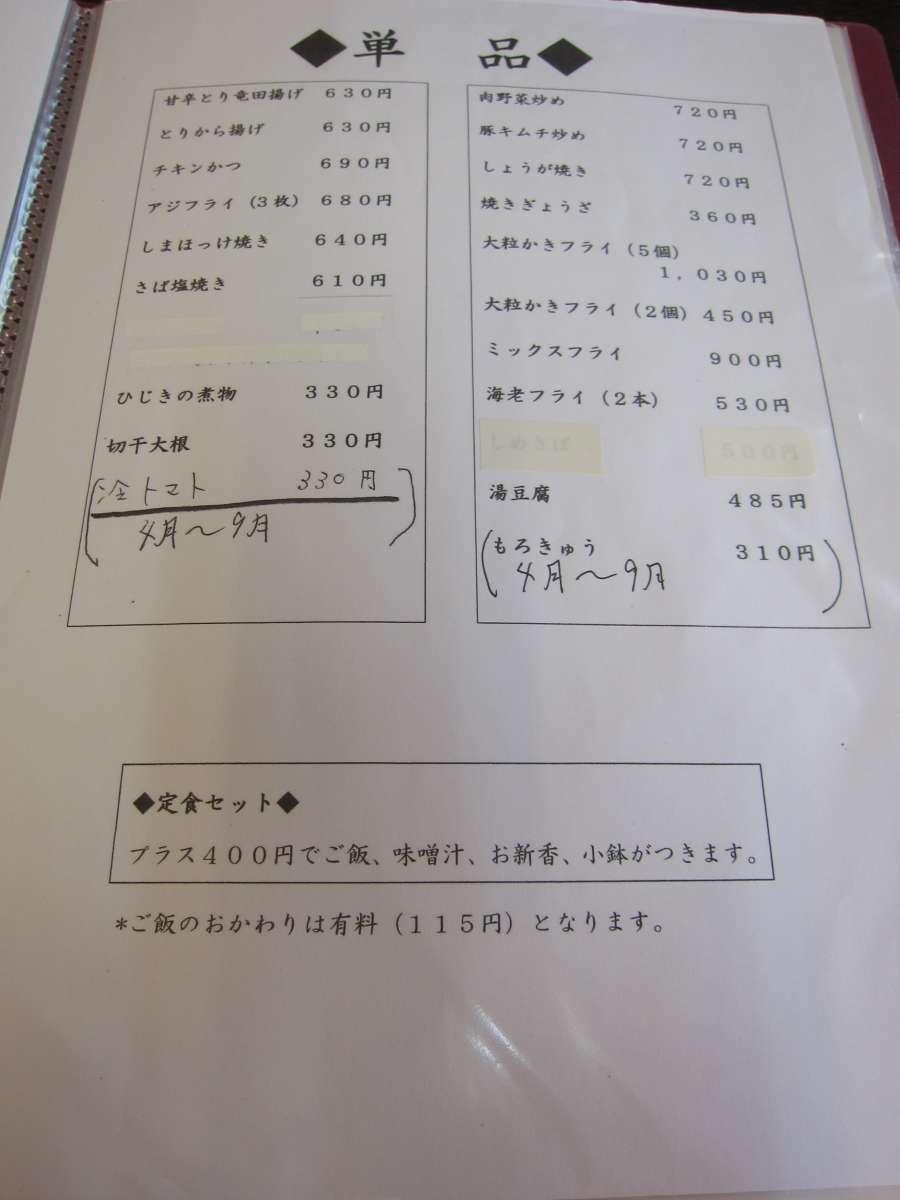 ◆単 品◆
甘辛とり竜田揚げ ６３０円
とりから揚げ ６３０円
チキンかつ ６９０円
アジフライ（３枚） ６８０円
しまほっけ焼き ６４０円
さば塩焼き ６１０円
ひじきの煮物 ３３０円
切干大根 ３３０円
冷トマト 330円
4月〜9月
肉野菜炒め ７２０円
豚キムチ炒め ７２０円
しょうが焼き ７２０円
焼きぎょうざ ３６０円
大粒かきフライ（５個）
１，０３０円
大粒かきフライ（２個） ４５０円
ミックスフライ ９００円
海老フライ（２本） ５３０円
しめさば ５００円
湯豆腐 ４８５円
(もろきゅう ３１０円)
4月〜9月
◆定食セット◆
プラス４００円でご飯、味噌汁、お新香、小鉢がつきます。
*ご飯のおかわりは有料（１１５円）となります。